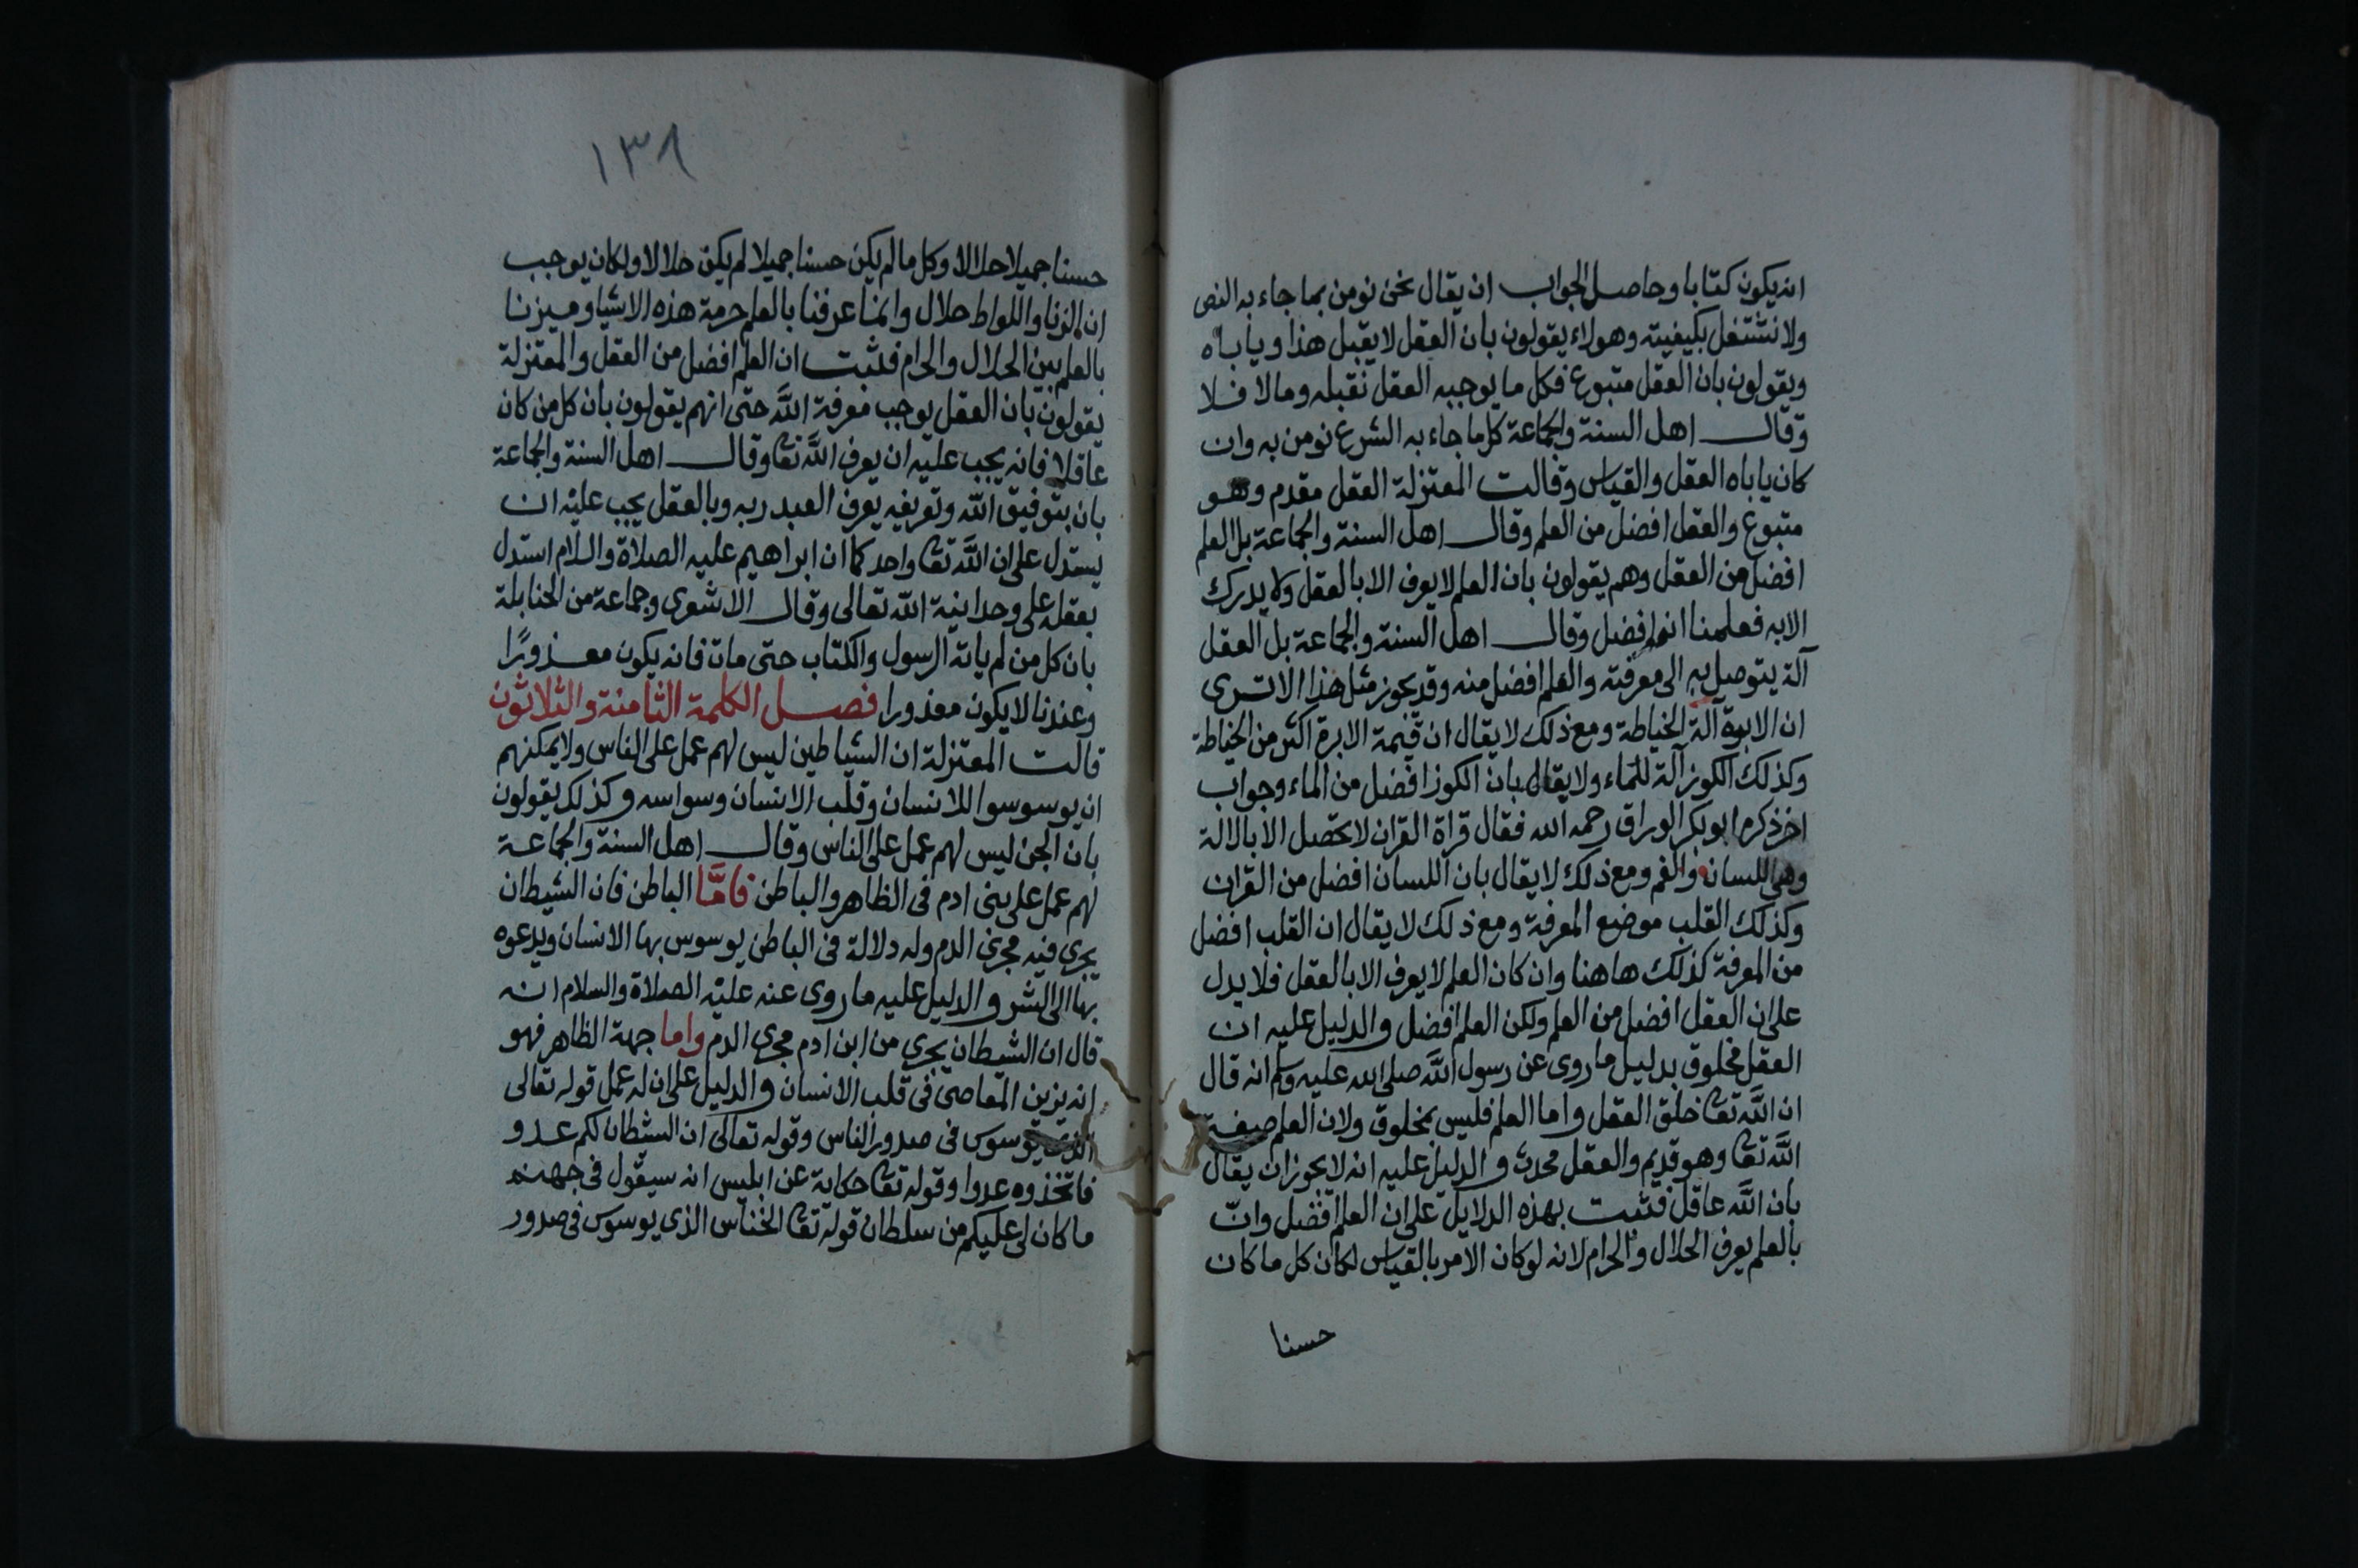 انه يكون كتابا وحاصل الجواب ان يقال نحن نومن بما جاء به النص
ولا نشتغل بكيفيته وهولاء يقولون بان العقل لا يقبل هذا ويأباه
ويقولون بان العقل متبوع فكل ما يوجبه العقل نقبله ومالا فلا
وقال اهل السنة والجماعة كل ما جاء به الشرع نومن به وان
كان ياباه العقل والقياس وقالت المعتزلة العقل مقدم وهو
متبوع والعقل افضل من العلم وقال اهل السنة والجماعة بل العلم
افضل من العقل وهم يقولون بان العلم لا يعرف الا بالعقل ولا يدرك
الا به فعلمنا انه افضل وقال اهل السنة والجماعة بل العقل
آلة يتوصل به الى معرفته والعلم افضل منه وقد يجوز مثل هذا الا ترى
ان الابرة آلة الخياطة ومع ذلك لا يقال ان قيمة الابرة اكثر من الخياطة
وكذلك الكوز آلة للماء ولا يقال بان الكوز افضل من الماء وجواب
اخر ذكره ابو بكر الوراق رحمه الله فقال قراة القران لا تحصل الا بالالة
وهي اللسان والفم ومع ذلك لا يقال بان اللسان افضل من القران
وكذلك القلب موضع المعرفة ومع ذلك لا يقال ان القلب افضل
من المعرفة كذلك هاهنا وان كان العلم لا يعرف الا بالعقل فلا يدل
على ان العقل افضل من العلم ولكن العلم افضل والدليل عليه ان
العقل مخلوق بدليل ما روى عن رسول الله صلى الله عليه وسلم انه قال
ان الله تعا خلق العقل واما العلم فليس بمخلوق ولان العلم صيفة
الله تعا وهو قديم والعقل محدث والدليل عليه انه لا يجوز ان يقال
بان الله عاقل فثبت بهذه الدلايل على ان العلم افضل وان
بالعلم يعرف الحلال والحرام لانه لو كان الامر بالقياس لكان كل ما كان
حسنا
١٣٨
حسنا جميلا حلالا وكل ما لم يكن حسنا جميلا لم يكن حلالا ولكان يوجب
ان الزنا واللواط حلال وانما عرفنا بالعلم حرمة هذه الاشيا وميزنا
بالعلم بين الحلال والحرام فثبت ان العلم افضل من العقل والمعتزلة
يقولون بان العقل يوجب معرفة الله حتى انهم يقولون بان كل من كان
عاقلا فانه يجب عليه ان يعرف الله تعا وقال اهل السنة والجماعة
بان بتوفيق الله وتعريفه يعرف العبد ربه وبالعقل يجب عليه ان
يستدل على ان الله تعا واحد كما ان ابراهيم عليه الصلاة والسلام استدل
بعقله على وحدانية الله تعالى وقال الاشعري وجماعة من الحنابلة
بان كل من لم ياته الرسول والكتاب حتى مات فانه يكون معذورًا
وعندنا لا يكون معذورا فصل الكلمة الثامنة والثلاثون
قالت المعتزلة ان الشياطين ليس لهم عمل على الناس ولا يمكنهم
ان يوسوسوا للانسان وقلب الانسان وسواسه وكذلك يقولون
بان الجن ليس لهم عمل على الناس وقال اهل السنة والجماعة
لهم عمل على بني ادم في الظاهر والباطن فامَّا الباطن فان الشيطان
يجري فيه مجرى الدم وله دلالة في الباطن يوسوس بها الانسان ويدعوه
بها الى الشر والدليل عليه ما روى عنه عليه الصلاة والسلام انه
قال ان الشيطان يجري من ابن ادم مجرى الدم واما جهة الظاهر فهو
انه يزين المعاصي في قلب الانسان والدليل على ان له عمل قوله تعالى
الذي يوسوس في صدور الناس وقوله تعالى ان الشيطان لكم عدو
فاتخذوه عدوا وقوله تعا حكاية عن ابليس انه سيقول في جهنم
ما كان لي عليكم من سلطان قوله تعا الخناس الذي يوسوس في صدور